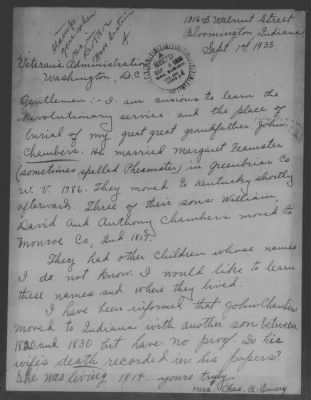 1316 S Walnut Street
Bloomington, Indiana
Sept. 1st 1935.
Veterans Administration
Washington, D.C.
Gentlemen:- I am anxious to learn the
Revolutionary service and the place of
burial of my great great grandfather John
Chambers. He married Margaret Feamster
(sometimes spelled Pheamster) in Greenbriar Co
W. V. 1786. They moved to Kentucky shortly
afterward. Three of their sons William,
David and Anthony Chambers moved to
Monroe Co, Ind. 1817.
They had other children whose names
I do not know. I would like to learn
these names and where they lived.
I have been informed that John Chambers
moved to Indiana with another son between
1820 and 1830 but have no proof. Is his
wife's death recorded in his papers?
She was living 1814. Yours truly
Mrs. Chas. A. Emery